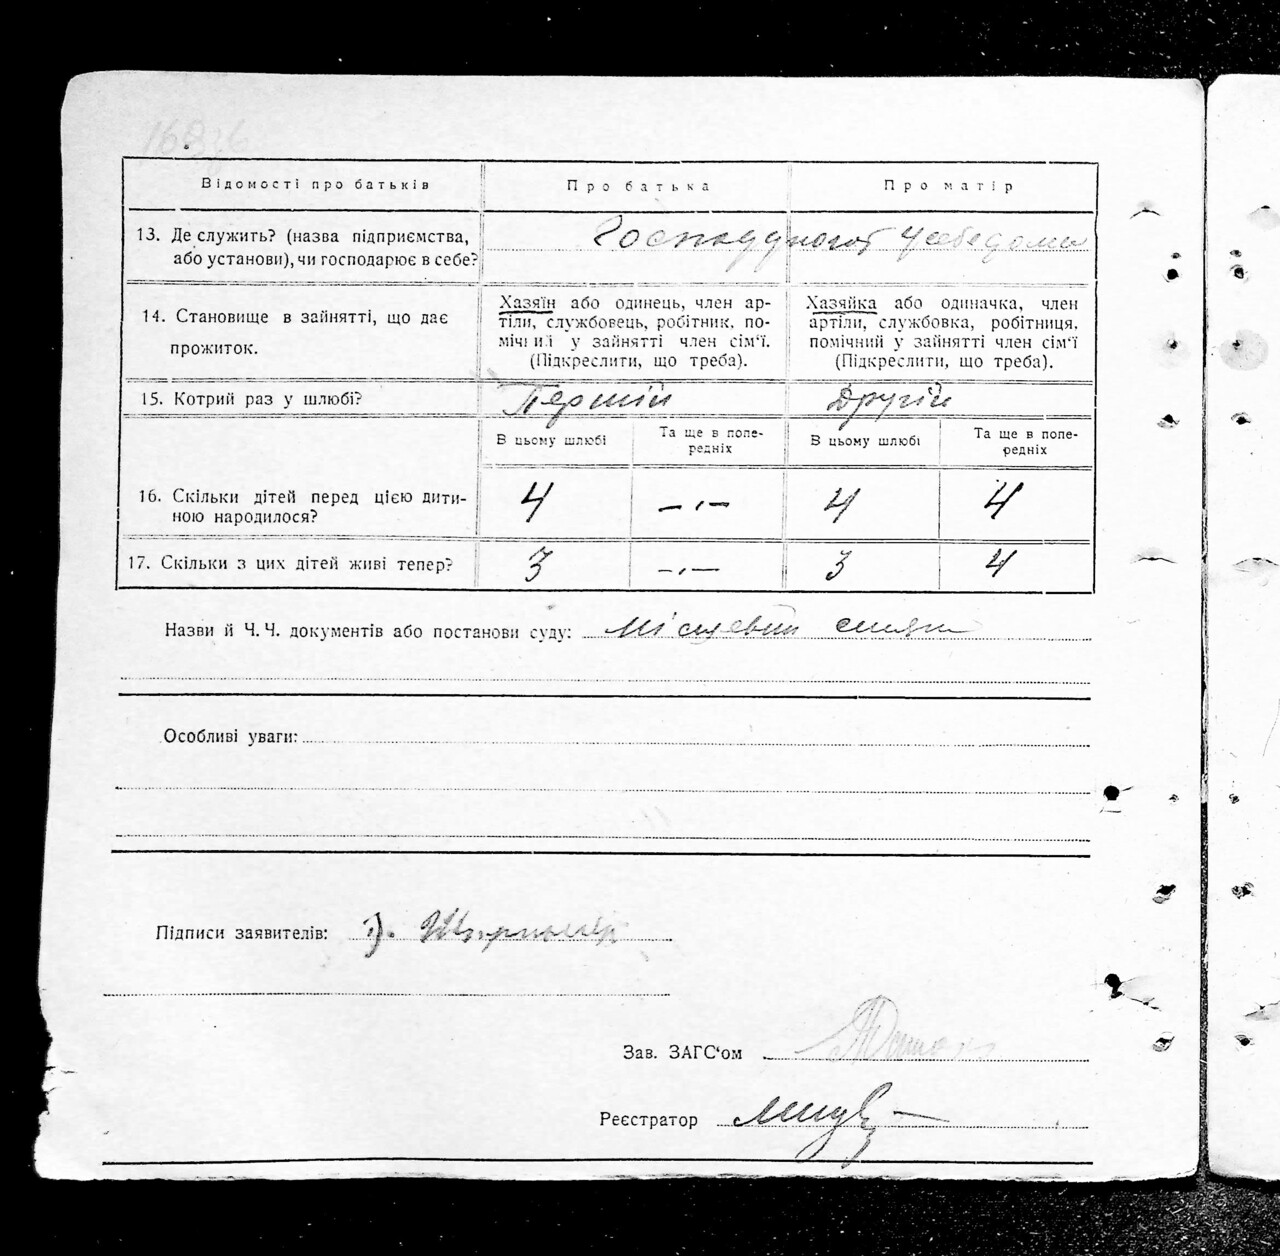 Відомості про батьків Про батька Про матір
13. Де служить? (назва підприємства,
або установи), чи господарює в себе?
14. Становище в зайнятті, що дає
прожиток.
Хазяїн або одинець, член ар-
тіли, службовець, робітник, по-
мічний у зайнятті член сім'ї.
(Підкреслити, що треба).
Хазяйка або одиначка, член
артіли, службовка, робітниця,
помічний у зайнятті член сім'ї
(Підкреслити, що треба).
15. Котрий раз у шлюбі? Перший Другій
В цьому шлюбі Та ще в попе-
редніх В цьому шлюбі Та ще в попе-
редніх
16. Скільки дітей перед цією дити-
ною народилося? 4 — „ — 4 4
17. Скільки з цих дітей живі тепер? 3 — „ — 3 4
Назви й Ч. Ч. документів або постанови суду:
Особливі уваги:
Підписи заявителів: 1).
Зав. ЗАГС'ом
Реєстратор